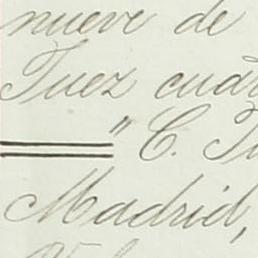 nueve de
Juez cuar
" C. Ju
Madrid,